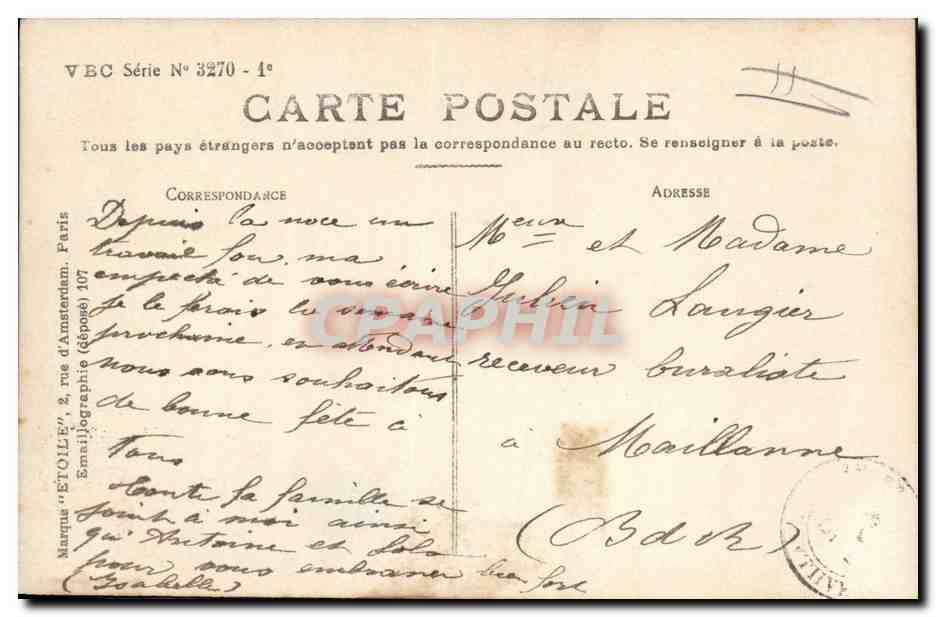 VBC Série Nº 3270 - 1e
CARTE POSTALE
Tous les pays étrangers n'acceptent pas la correspondance au recto. Se renseigner à la poste.
CORRESPONDANCE
Depuis la noce un
travail fou, ma
empeché de vous écrire
je le ferais la semaine
prochaine, en attendant
nous vous souhaitons
de bonne fête à
Tous
Toute la famille se
joint à moi ainsi
qu'Antoine et
pour vous embrasser bien fort
(Isabelle)
ADRESSE
Meur et Madame
Julien Laugier
receveur buraliste
à Maillanne
(B d R)
Marque "ETOILE", 2, rue d'Amsterdam. Paris
Emaillographie (déposé) 107
CPAPHIL